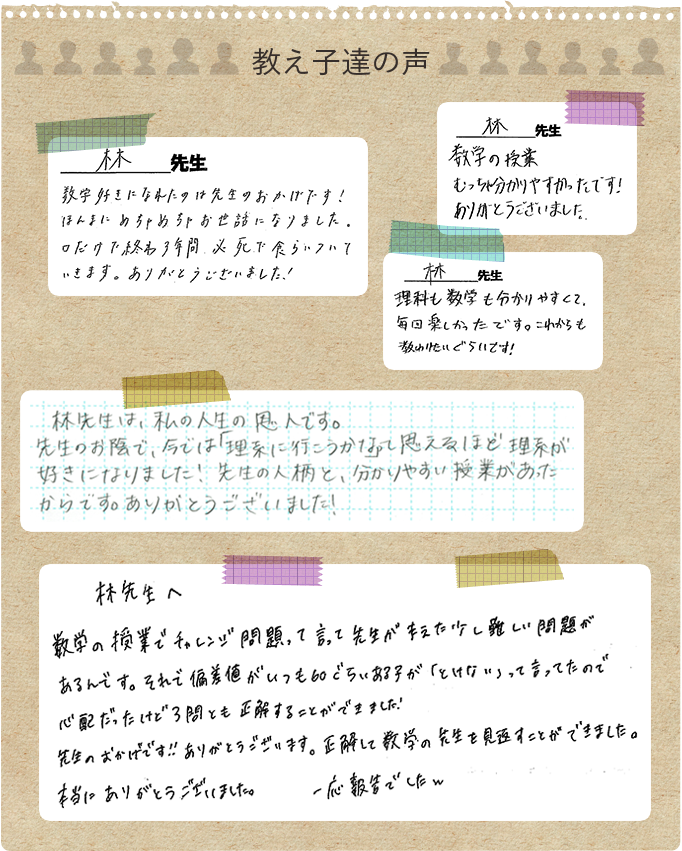 教え子達の声
林 先生
数学好きになれたのは先生のおかげです！
ほんまにめちゃめちゃお世話になりました。
口だけで終わる年間、必死で食らいついて
いきます。ありがとうございました！
林 先生
数学の授業
むっちゃ分かりやすかったです！
ありがとうございました。
林 先生
理科も数学も分かりやすくて、
毎回楽しかったです。これからも
教わりたいぐらいです！
林先生は、私の人生の恩人です。
先生のお陰で、今では「理系に行こうかな」って思えるほど理系が
好きになりました！先生の人柄と、分かりやすい授業があった
からです。ありがとうございました！
林先生へ
数学の授業でチャレンジ問題って言って先生が考えた少し難しい問題が
あるんです。それで偏差値がいつも60ぐらいある子が「とけない」って言ってたので
心配だったけど3問とも正解することができました！
先生のおかげです!!ありがとうございます。正解して数学の先生を見返すことができました。
本当にありがとうございました。 一応報告でしたw